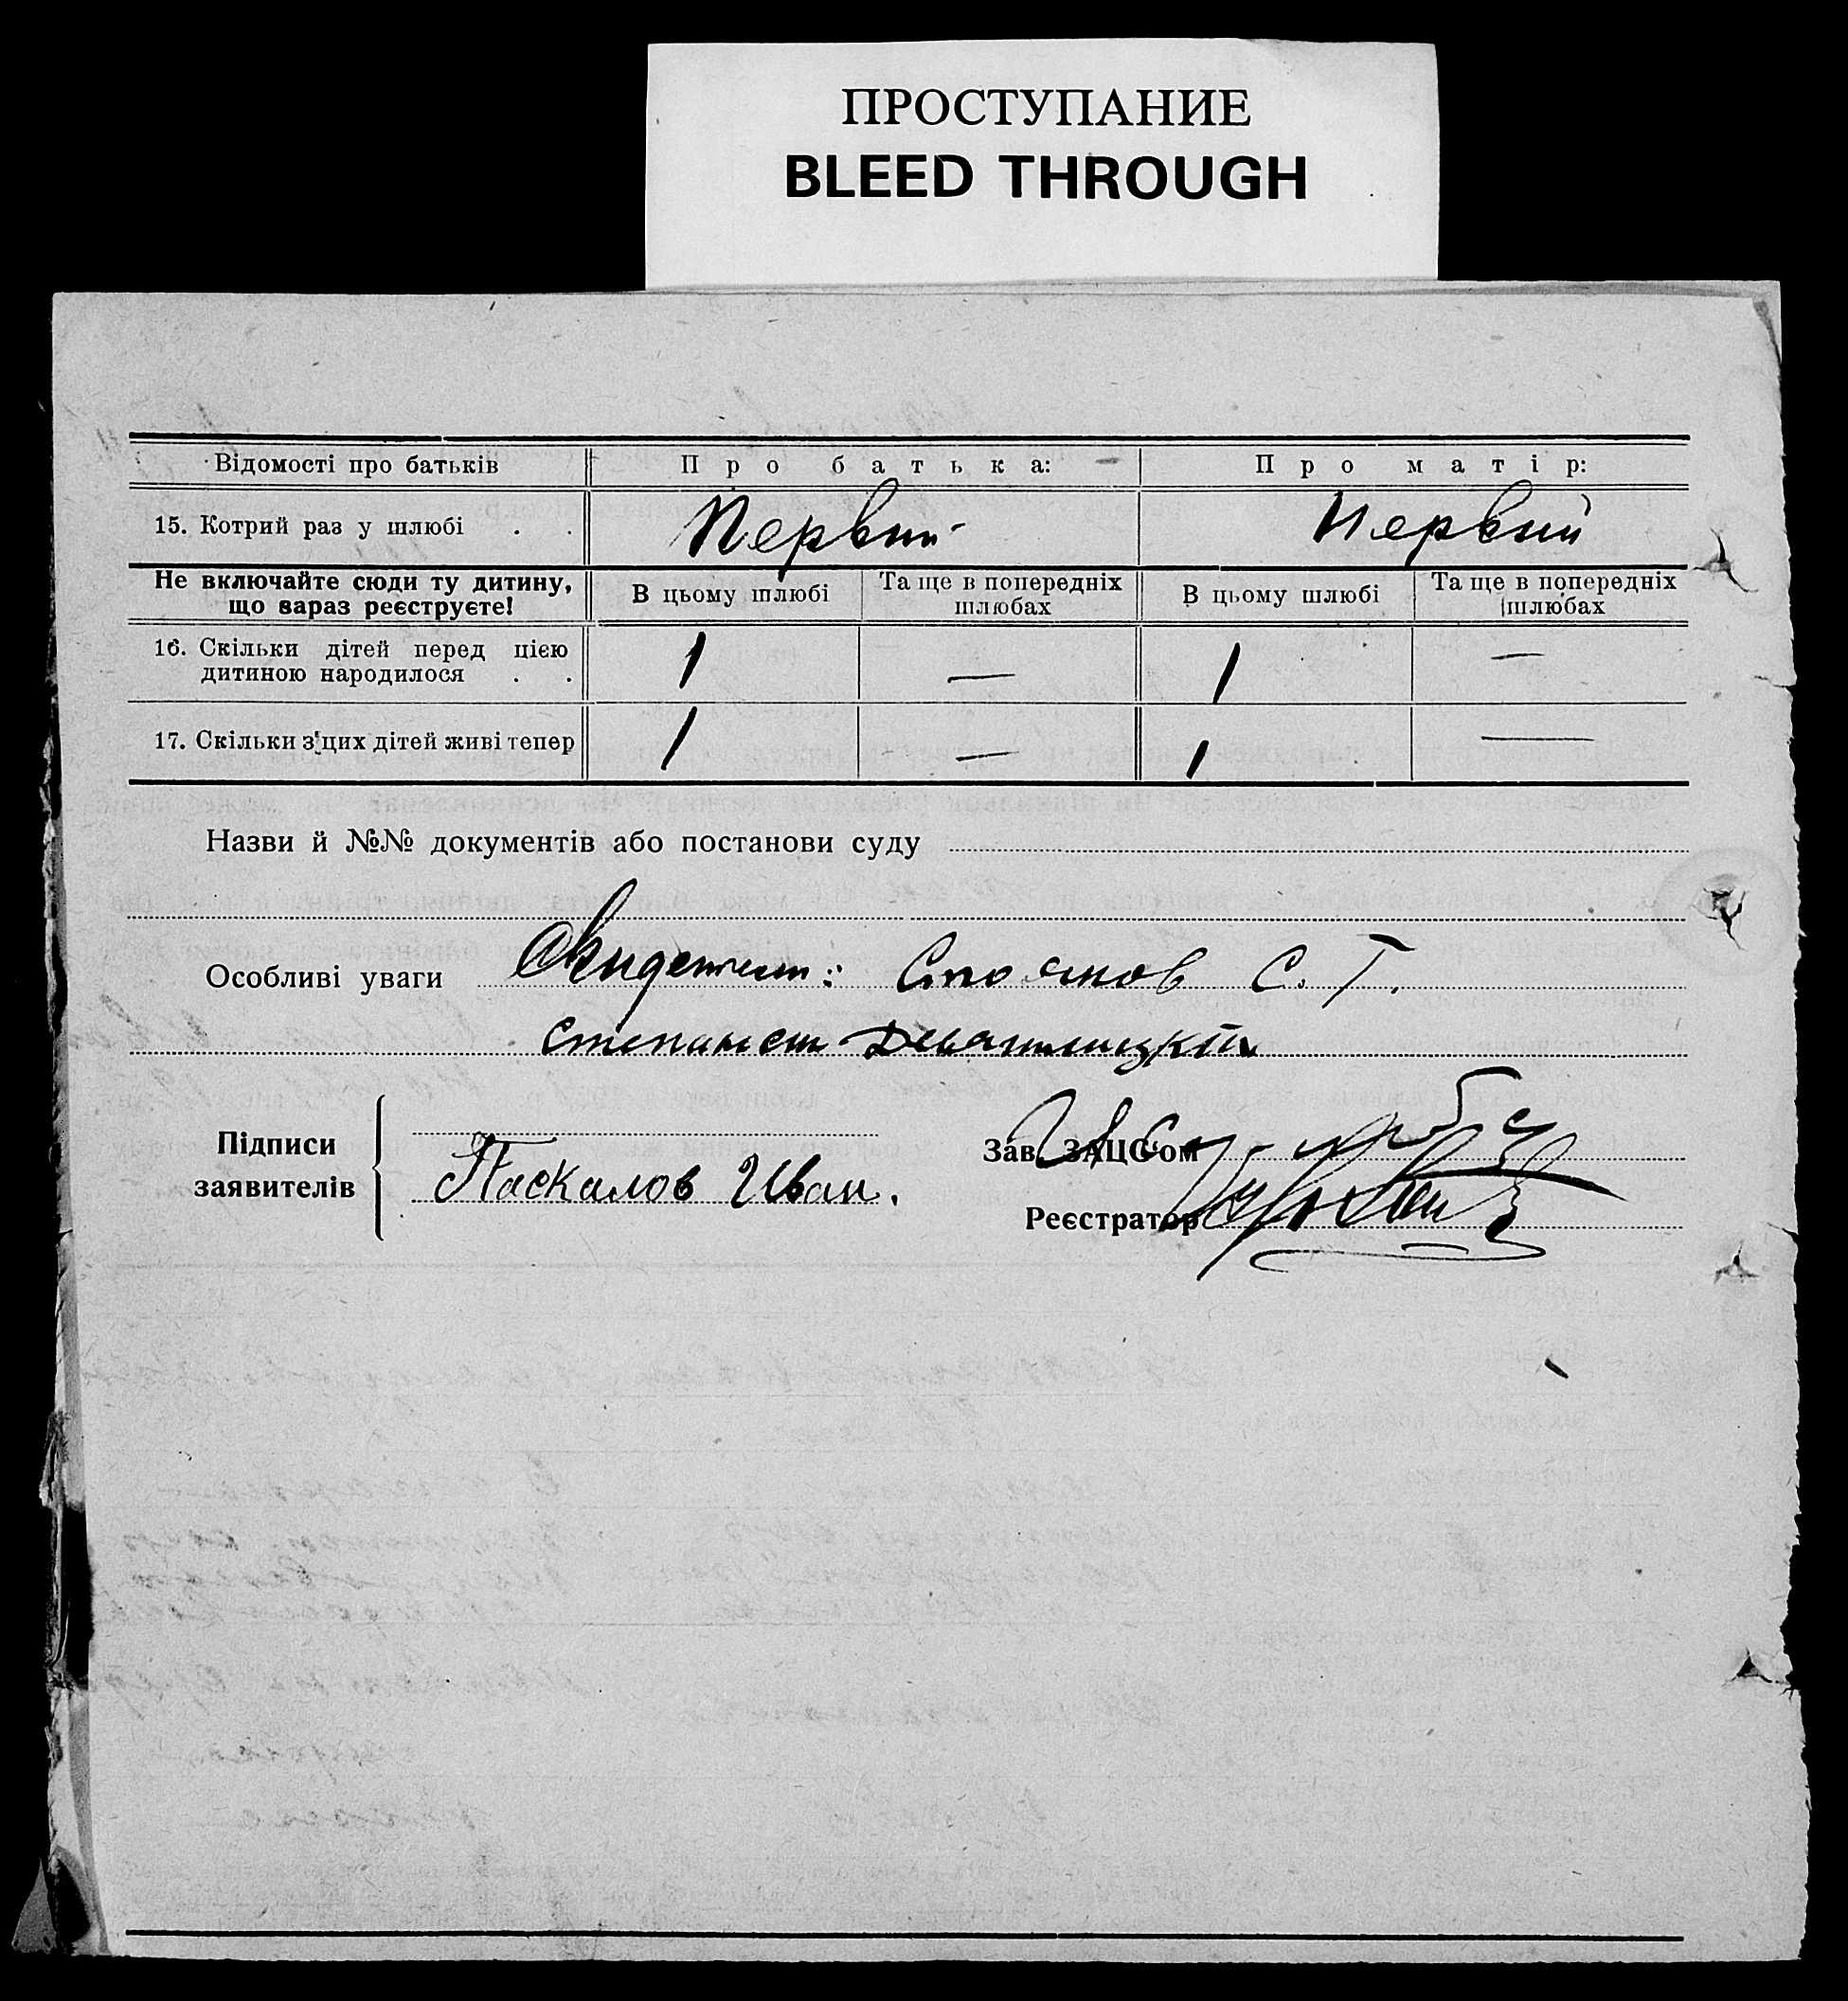 ПРОСТУПАНИЕ
BLEED THROUGH
Відомості про батьків Про батька: Про матір:
15. Котрий раз у шлюбі . . Первый Первый
Не включайте сюди ту дитину, що вараз реєструєте! В цьому шлюбі Та ще в попередніх шлюбах В цьому шлюбі Та ще в попередніх шлюбах
16. Скільки дітей перед цією дитиною народилося . . 1 — 1 —
17. Скільки з цих дітей живі тепер 1 — 1 —
Назви й №№ документів або постанови суду
Особливі уваги Свидетели: Стоянов С. Г.
Підписи заявителів
Паскалов Иван.
Зав. ЗАЦС'ом
Реєстратор